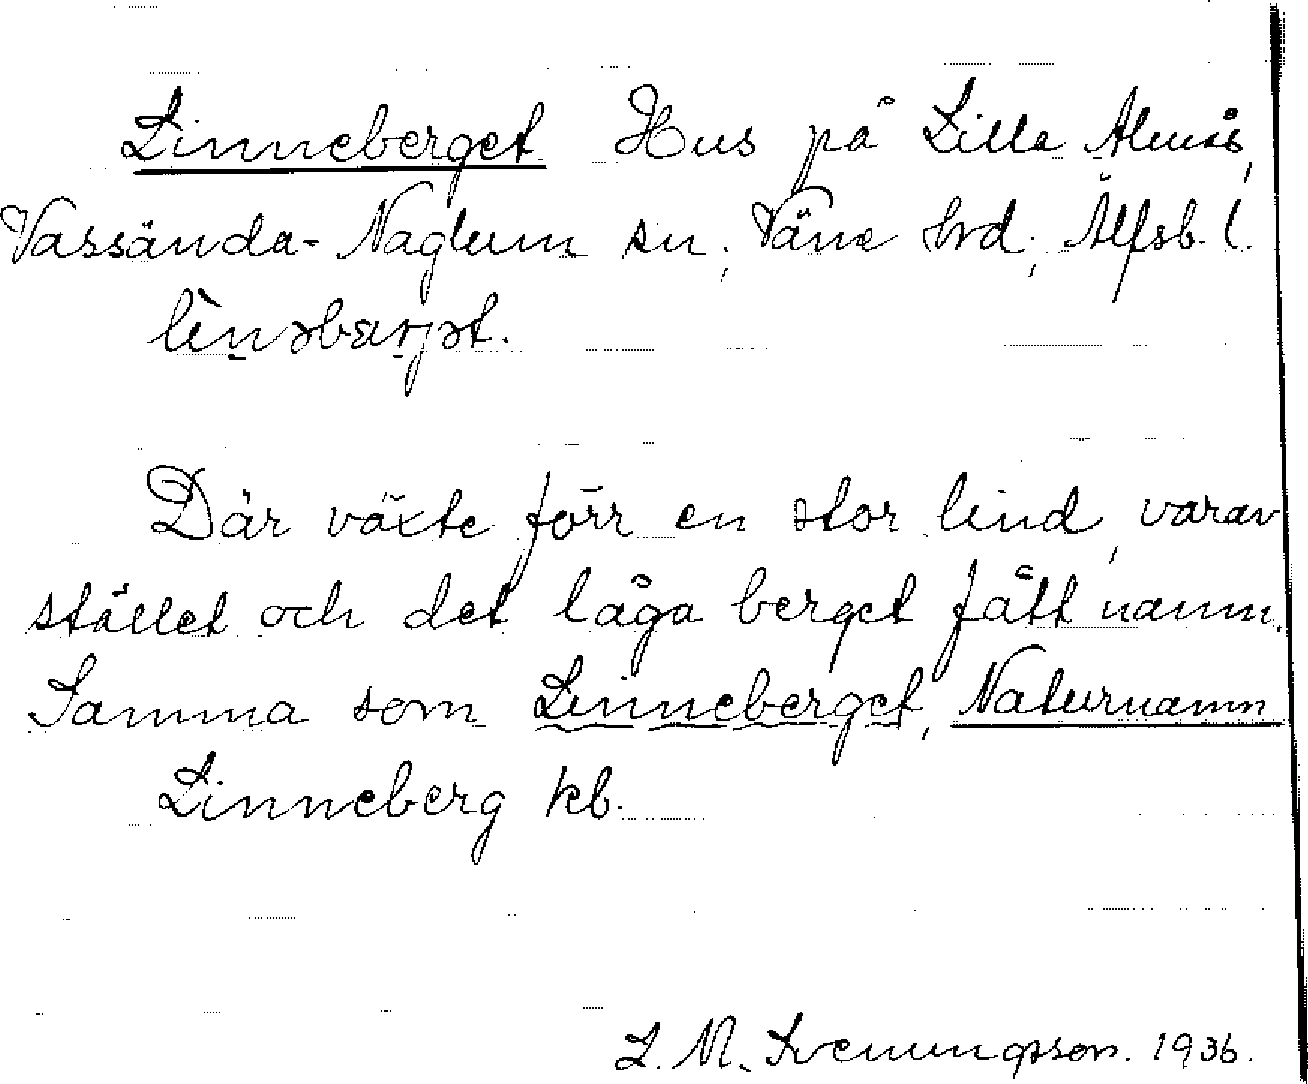 Linneberget Hus på Lilla Almås,
Vassända-Naglum sn, Väne hrd, Älfsb. l.
Där växte förr en stor lind, varav
stället och det låga berget fått namn.
Samma som Linneberget, Naturnamn
Linneberg kb.
L. M. Svenungsson. 1936.